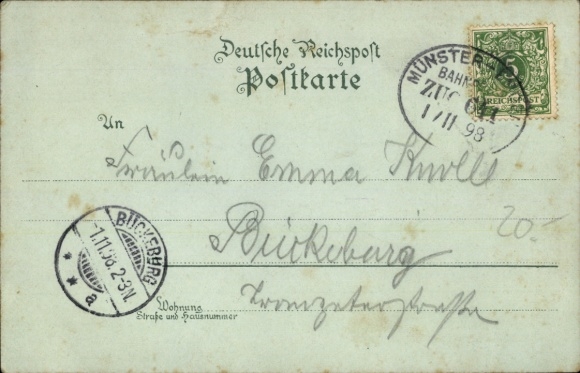 Deutsche Reichspost
Postkarte
MÜNSTER
BAHNP
ZUG 641
1/11 98
5
REICHSPOST
An
Fräulein Emma Knoll
20.-
Bückeburg
BÜCKEBURG
1.11.98. 2-3N.
* *
a
Wohnung
Straße und Hausnummer